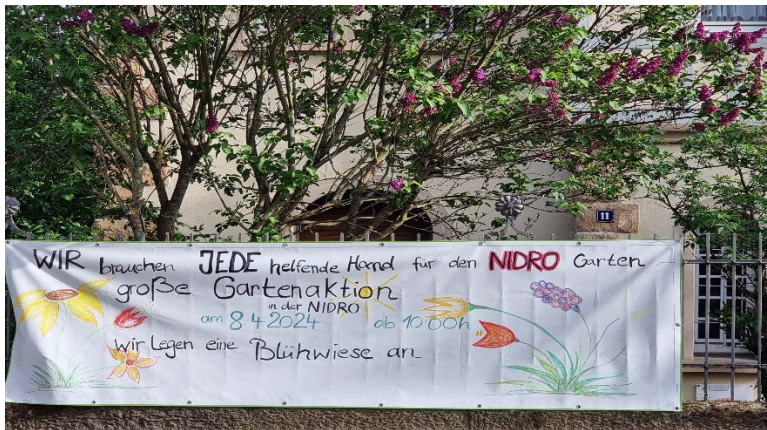 11
WIR brauchen JEDE helfende Hand für den NIDRO Garten
große Gartenaktion
in der NIDRO
am 8 4 2024 ab 10 00h
wir Legen eine Blühwiese an